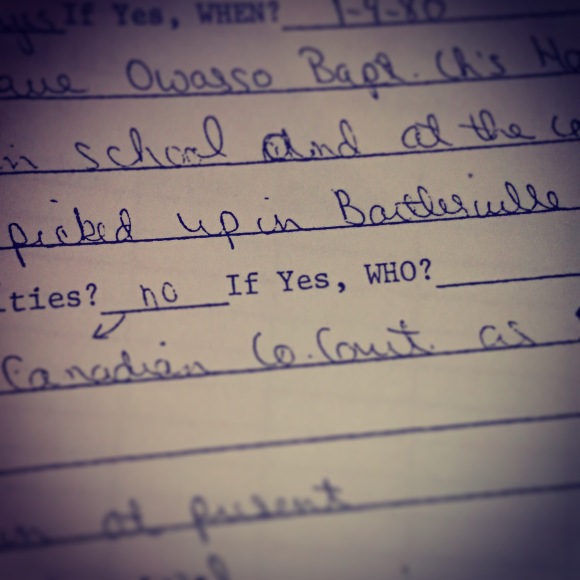 If Yes, WHEN? 1-9-80
Owasso Bapt. Ch's
in school and at the
picked up in Bartlesville
ties? no If Yes, WHO?
Canadian Co. Court. as
at present